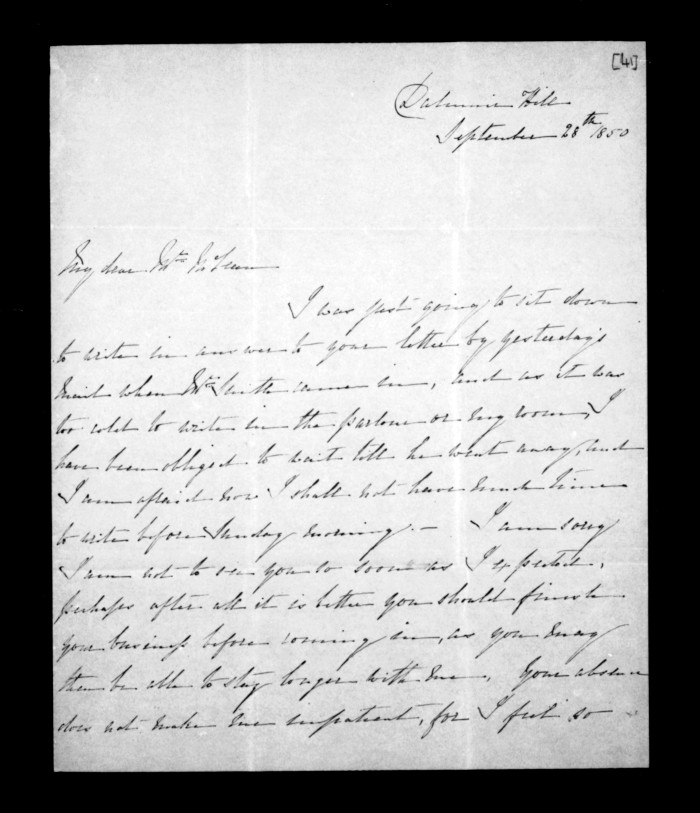 [41]
Dalmuir Hill
September 28th 1850
My dear Mr McLean
I was just going to sit down
to write in answer to your letter by yesterday's
mail when Mr Smith came in, and as it was
too cold to write in the parlour or my room, I
have been obliged to wait till he went away, and
I am afraid now I shall not have much time
to write before Sunday morning. – I am sorry
I am not to see you so soon as I expected,
perhaps after all it is better you should finish
your business before coming in, as you may
then be able to stay longer with me. Your absence
does not make me impatient, for I feel so